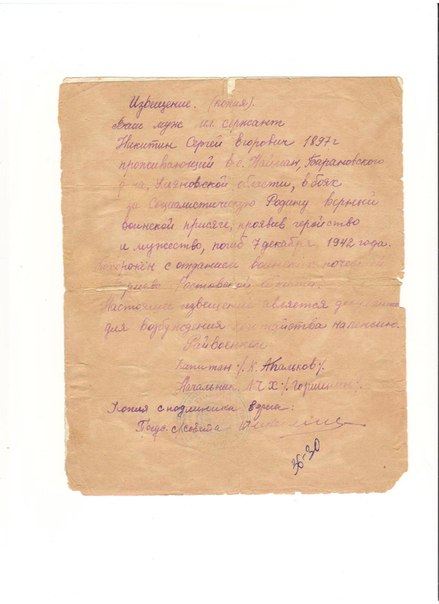 Извещение. (копия).
Ваш муж мл. сержант
Никитин Сергей Егорович 1897г
проживающий в с. Найман, Барановского
р-на, Ульяновской области, в боях
за Социалистическую Родину верный
воинской присяге, проявив геройство
и мужество, погиб 7 декабря 1942 года.
Похоронен с отданием воинских почестей
Ростовской области.
Настоящее извещение является документом
для возбуждения ходатайства на пенсию.
Райвоенком
Капитан /
Начальник
Копия с подлинника верна:
Пред. с/совета
36-30